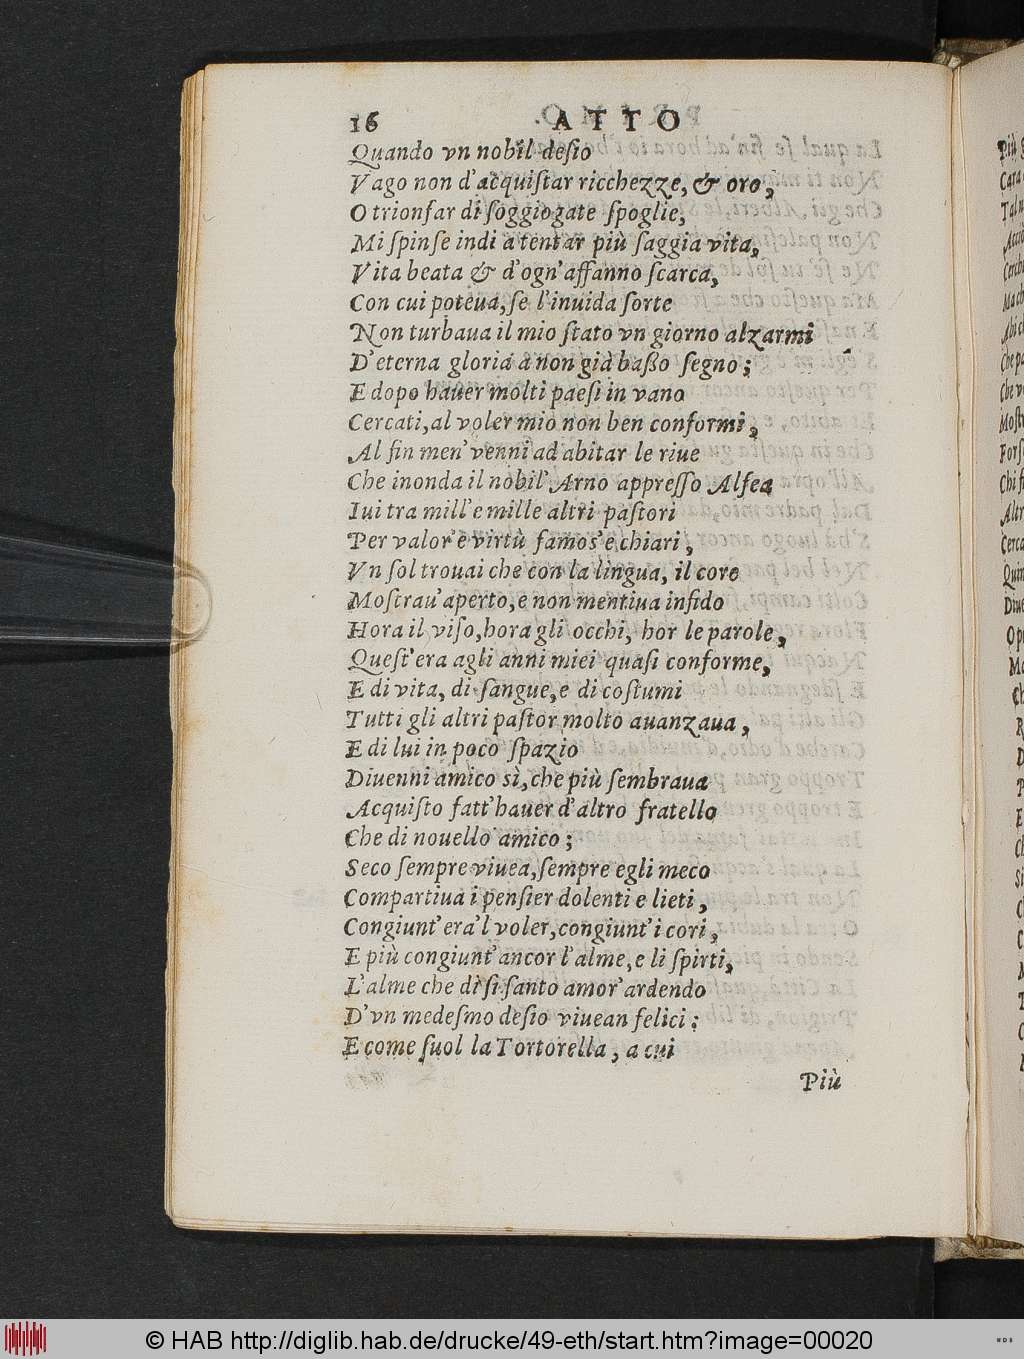 16 ATTO
Quando vn nobil desio
Vago non d'acquiſtar ricchezze, & oro,
O trionfar di ſoggiogate ſpoglie,
Mi ſpinſe indi a tentar più ſaggia vita,
Vita beata & d'ogn'affanno ſcarca,
Con cui poteua, ſe l'inuida ſorte
Non turbaua il mio ſtato vn giorno alzarmi
D'eterna gloria a non già baßo ſegno;
E dopo hauer molti paeſi in vano
Cercati, al voler mio non ben conformi,
Al fin men' venni ad abitar le riue
Che inonda il nobil' Arno appreſſo Alfea
Iui tra mill'e mille altri paſtori
Per valor'e virtù famos'e chiari,
Vn ſol trouai che con la lingua, il core
Moſtrau'aperto, e non mentiua infido
Hora il viſo, hora gli occhi, hor le parole,
Queſt'era agli anni miei quaſi conforme,
E di vita, di ſangue, e di coſtumi
Tutti gli altri paſtor molto auanzaua,
E di lui in poco ſpazio
Diuenni amico sì, che più ſembraua
Acquiſto fatt'hauer d'altro fratello
Che di nouello amico;
Seco ſempre viuea, ſempre egli meco
Compartiua i penſier dolenti e lieti,
Congiunt'era'l voler, congiunt'i cori,
E più congiunt'ancor l'alme, e li ſpirti,
L'alme che di ſi ſanto amor'ardendo
D'vn medeſmo deſio viuean felici;
E come ſuol la Tortorella, a cui
Più
© HAB http://diglib.hab.de/drucke/49-eth/start.htm?image=00020